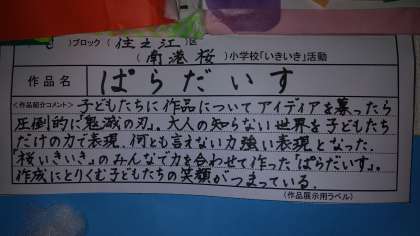 )ブロック(住之江)区
(南港桜)小学校「いきいき」活動
作品名 ぱらだいす
<作品紹介コメント>子どもたちに作品についてアイディアを募ったら
圧倒的に「鬼滅の刃」。大人の知らない世界を子どもたち
だけの力で表現。何とも言えない力強い表現となった。
「桜いきいき」のみんなで力を合わせて作った「ぱらだいす」。
作成にとりくむ子どもたちの笑顔がつまっている。
(作品展示用ラベル)